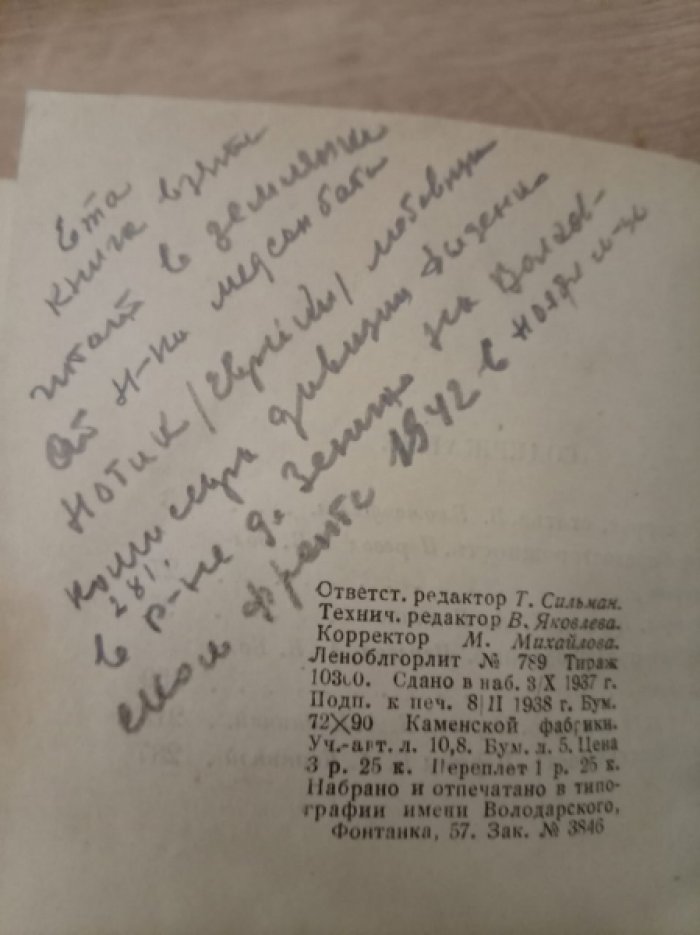 Ета
книга взята
читать в землянке
от н-ка медсанбата
Нотик /еврейки/ любовницы
комиссара дивизии
281.
в р-не д. Зеницы на Волхов-
ском фронте 1942 в ноябре м-це
Ответст. редактор Т. Сильман.
Технич. редактор В. Яковлева.
Корректор М. Михайлова.
Леноблгорлит № 789 Тираж
10300. Сдано в наб. 3/X 1937 г.
Подп. к печ. 8/II 1938 г. Бум.
72×90 Каменской фабрики.
Уч.-авт. л. 10,8. Бум. л. 5. Цена
3 р. 25 к. Переплет 1 р. 25 к.
Набрано и отпечатано в типо-
графии имени Володарского,
Фонтанка, 57. Зак. № 3846